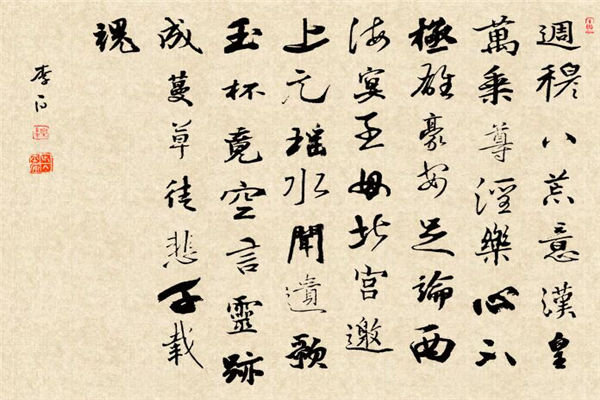 週穆八荒意漢皇
萬乘尊淫樂心不
極雄豪安足論西
海宴王母北宮邀
上元瑤水聞遺歌
玉杯竟空言靈跡
成蔓草徒悲千載
魂
李